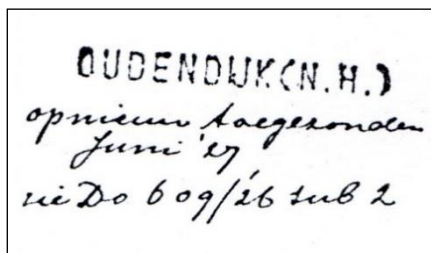 OUDENDIJK (N.H.)
opnieuw toegezonden
Juni '27
zie Do 609/26 sub 2